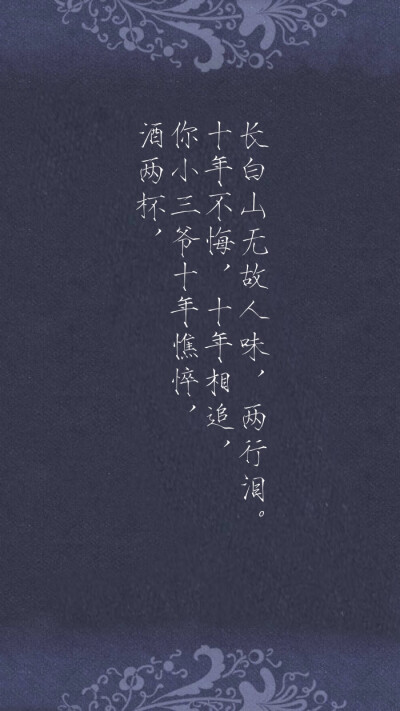 酒两杯，
你小三爷十年憔悴，
十年不悔，十年相追，
长白山无故人味，两行泪。